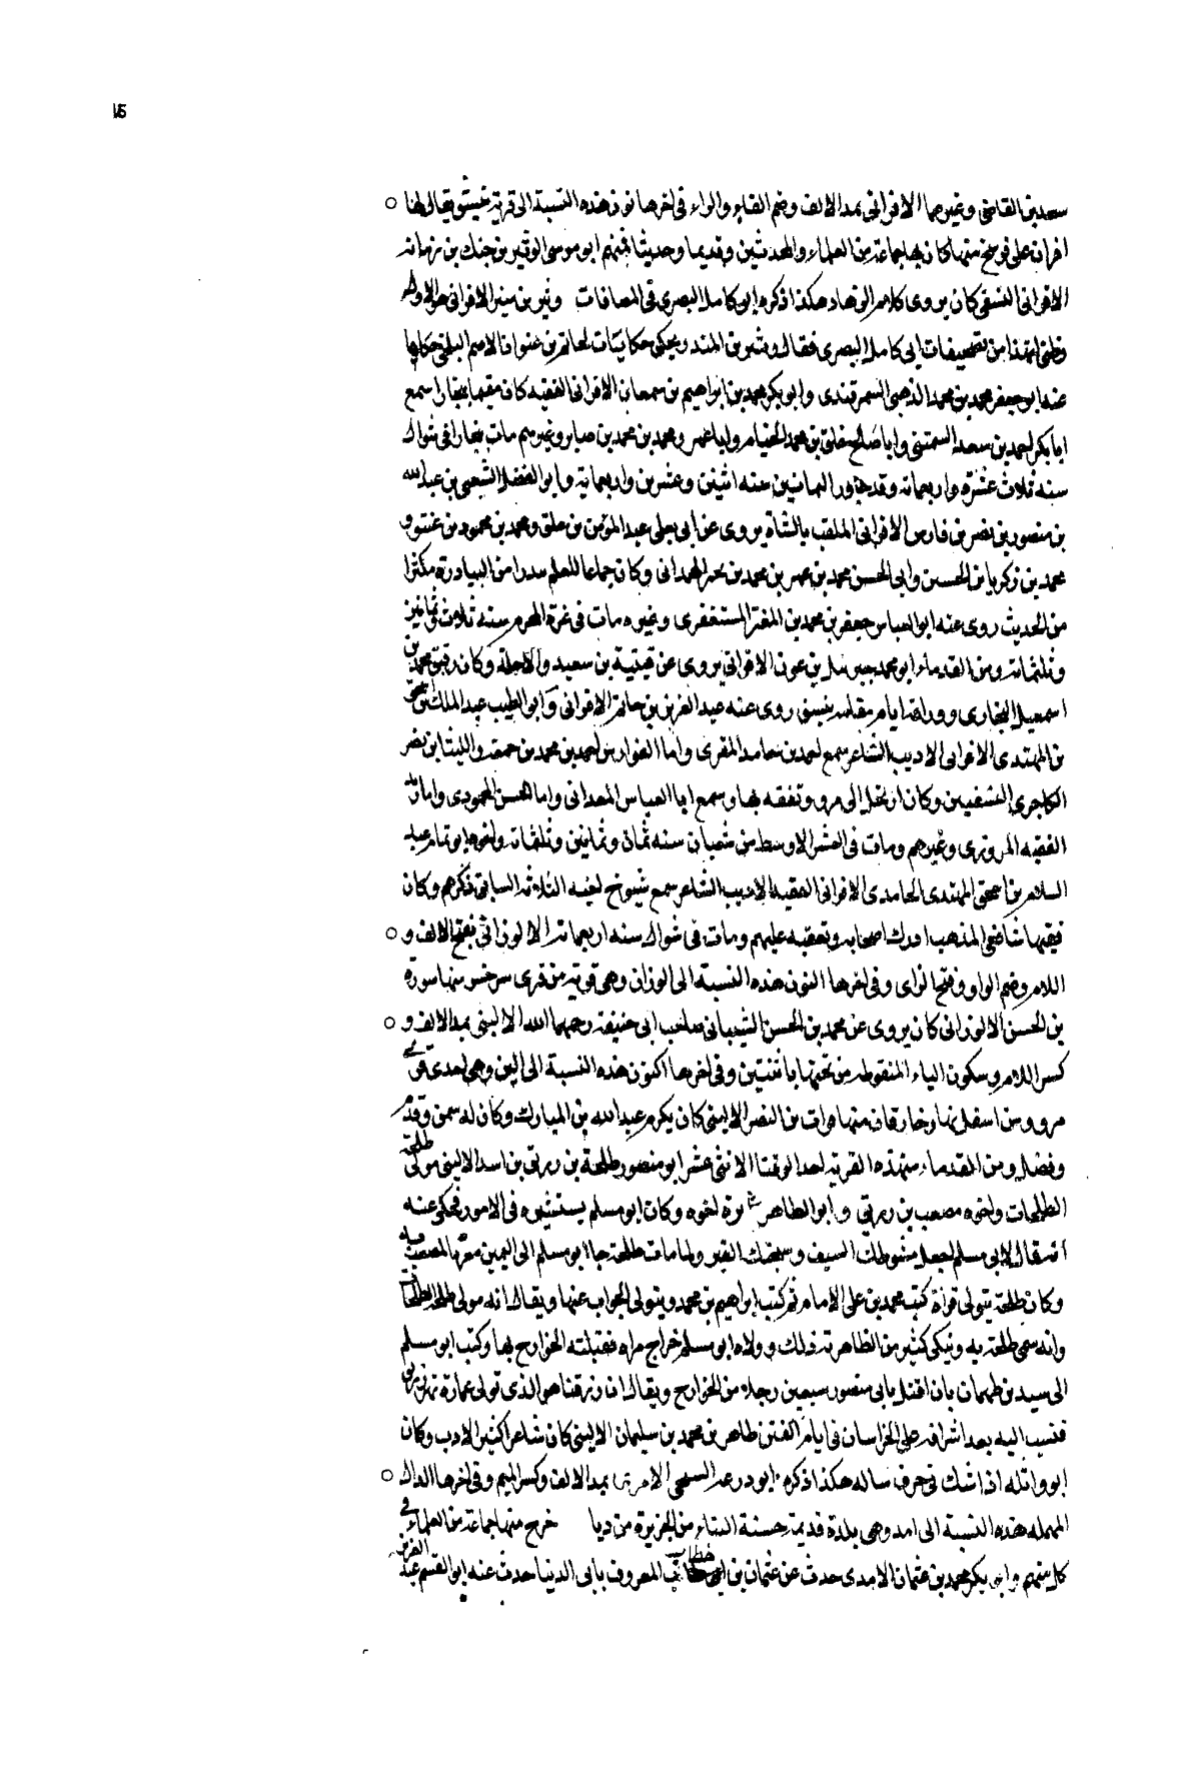 15
سعيد بن القاضى وغيرهما الافرانى بمد الالف وضم الفاء والراء فى اخرها نون هذه النسبة الى قرية بنسف يقال لها
افران على فرسخ منها كان بها جماعة من العلماء والمحدثين وقديما وحديثا فمنهم ابو موسى الوثير بن جنك بن
الافرانى النسفى كان يروى كلام هكذا ذكره ابو كامل البصرى فى المضافات وثير بن منير الافرانى
وظنى ان هذا من تصحيفات ابى كامل البصرى فقال وثير بن المنذر ويحكى حكايات لحاتم بن عنوان الاصم البلخى حكاها
عنه ابو جعفر محمد بن محمد الذهبى السمرقندى وابو بكر محمد بن ابراهيم بن سمعان الافرانى الفقيه كان مقيما ببخارا سمع
ابا بكر احمد بن سعد وابا صالح خلف بن محمد الخيام وابا عمرو محمد بن محمد بن صابر وغيرهم مات ببخارا فى شوال
سنة ثلاث عشرة واربعمائة وقد جاوز الثمانين سنه اثنين وعشرين واربعمائة وابو الفضل الشعبى بن عبد الله
بن منصور بن نصر بن فارس الافرانى الملقب بالشاة يروى عن ابى يعلى عبد المؤمن بن خلف ومحمد بن محمود بن عنتر و
محمد بن زكريا بن الحسين وابى الحسن محمد بن عمر بن محمد بن بحر الهمدانى وكان جماعا للعلم مكثرا
من الحديث روى عنه ابو العباس جعفر بن محمد بن المعتز المستغفرى وغيره مات فى غرة المحرم سنه ثلاث وثمانين
وثلثمائة ومن القدماء ابو محمد جبريل بن عون الافرانى يروى عن قتيبة بن سعيد والاجلة وكان رفيق محمد بن
اسمعيل البخارى ووراقه ايام مقامه بنسف روى عنه عبد العزيز بن حاتم الافرانى وابو الطيب عبد الملك بن اسحق
بن المهتدى الافرانى الاديب الشاعر سمع احمد بن حامد المقرى وابا الفوارس احمد بن محمد بن جمعه والليث ابن نصر
الكاجرى النسفيين وكان ارتحل الى مرو وتفقه بها وسمع ابا العباس المعدانى وابا الحسن المحمودى وابا زيد
الفقيه المروزى وغيرهم ومات فى العشر الاوسط من شعبان سنه ثمان وثمانين وثلثمائة واخوه ابو تمام عبد
السلام بن اسحق المهتدى الحامدى الافرانى الفقيه الاديب الشاعر سمع شيوخ اخيه الثلاثه السابق ذكرهم وكان
فقيها شافعى المذهب ادرك اصحابه وتفقه عليهم ومات فى شوال سنه اربعمائة الالوزانى بفتح الالف و
اللام وضم الواو وفتح الزاى وفى اخرها النون هذه النسبة الى الوزان وهى قرية من قرى سرخس منها سورة
بن الحسن الالوزانى كان يروى عن محمد بن الحسن الشيبانى صاحب ابى حنيفة رحمهما الله الالينى بمد الالف و
كسر اللام وسكون الياء المنقوطه من تحتها باثنتين وفى اخرها النون هذه النسبة الى الين وهى احدى قرى
مرو من اسفل نهار خارقان منها فرات بن النضر الالينى كان يكرم عبد الله بن المبارك وكان له سمن وقدم
وفضل ومن القدماء من هذه القرية احد النقبا الاثنى عشر ابو منصور طلحة بن رزيق بن اسد الالينى مولى طلحة
الطلحات واخوه مصعب بن رزيق وابو الطاهر اخوه وكان ابو مسلم يستشيره فى الامور فحكى عنه
انه قال لابى مسلم اجعل سوطك السيف وسجنك القبر ولما مات طلحة جا ابو مسلم الى اليمين معزيا لمصعب
وكان طلحة يتولى قراة كتب محمد بن على الامام ثم كتب ابراهيم بن محمد ويتولى الجواب عنها ويقال انه مولى طلحة الطلحات
وانه سمى طلحة به وينكر كثير من الطاهرية ذلك وولاه ابو مسلم خراج هراه فقتلته الخوارج بها وكتب ابو مسلم
الى بن طهمان بان اقتل بابى منصور سبعين رجلا من الخوارج ويقال ان هو الذى تولى عمارة نهر
فنسب اليه بعد اشرافه على الخراسان فى ايام الفتن طاهر بن محمد بن سليمان الالينى كان شاعرا كثير الادب وكان
ابو واثله اذا شك فى حرف ساله هكذا ذكره ابو زرعه السنجى الامدى بمد الالف وكسر الميم وفى اخرها الدال
المهمله هذه النسبة الى امد وهى بلدة قديمة حسنة البناء من الجزيرة من ديا خرج منها جماعة من العلماء فى
كل منهم وابو بكر محمد بن عثمان الامدى حدث عن عثمان بن خطاب المعروف بابى الدنيا حدث عنه ابو القسم عبد العزيز